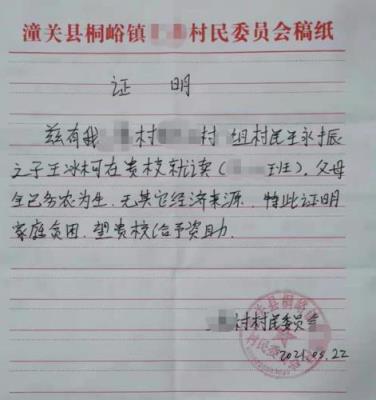 潼关县桐峪镇 村民委员会稿纸
证 明
兹有我 村 村 组村民王永振
之子王冰柯在贵校就读( 班),父母
务农为生,无其它经济来源,特此证明
家庭贫困,望贵校给予资助.
村村民委员会
2021.09.22